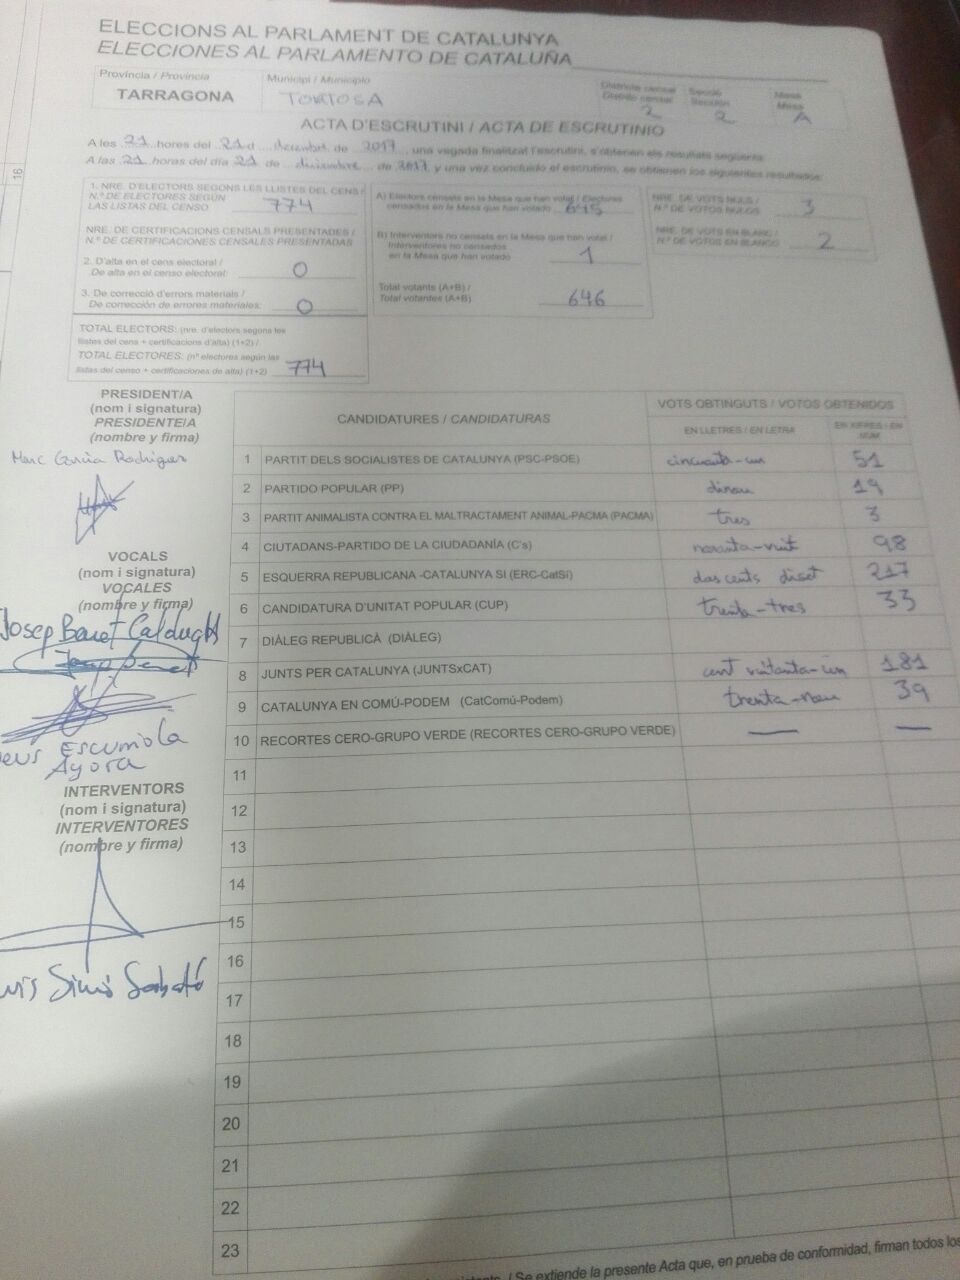 ELECCIONS AL PARLAMENT DE CATALUNYA
ELECCIONES AL PARLAMENTO DE CATALUÑA
Província / Provincia
TARRAGONA
Municipi / Municipio
TORTOSA
Districte censal
Distrito censal
2
Secció
Sección
2
Mesa
Mesa
A
ACTA D'ESCRUTINI / ACTA DE ESCRUTINIO
A les 21 hores del 21 d desembre de 2017, una vegada finalitzat l'escrutini, s'obtenen els resultats següents:
A las 21 horas del día 21 de diciembre de 2017 y una vez concluido el escrutinio, se obtienen los siguientes resultados:
1. NRE. D'ELECTORS SEGONS LES LLISTES DEL CENS /
N.º DE ELECTORES SEGÚN
LAS LISTAS DEL CENSO 774
NRE. DE CERTIFICACIONS CENSALS PRESENTADES /
N.º DE CERTIFICACIONES CENSALES PRESENTADAS
2. D'alta en el cens electoral /
De alta en el censo electoral: 0
3. De correcció d'errors materials /
De corrección de errores materiales: 0
TOTAL ELECTORS: (nre. d'electors segons les
llistes del cens + certificacions d'alta) (1+2) /
TOTAL ELECTORES: (nº electores según las
listas del censo + certificaciones de alta) (1+2) 774
A) Electors censats en la Mesa que han votat / Electores
censados en la Mesa que han votado 645
B) Interventors no censats en la Mesa que han votat /
Interventores no censados
en la Mesa que han votado 1
Total votants (A+B) /
Total votantes (A+B) 646
NRE. DE VOTS NULS /
N.º DE VOTOS NULOS 3
NRE. DE VOTS EN BLANC /
N.º DE VOTOS EN BLANCO 2
PRESIDENT/A
(nom i signatura)
PRESIDENTE/A
(nombre y firma)
Marc García Rodríguez
VOCALS
(nom i signatura)
VOCALES
(nombre y firma)
Josep Benet
Escumiola
Ayora
INTERVENTORS
(nom i signatura)
INTERVENTORES
(nombre y firma)
CANDIDATURES / CANDIDATURAS
VOTS OBTINGUTS / VOTOS OBTENIDOS
EN LLETRES / EN LETRA
EN XIFRES / EN
NUM
1 PARTIT DELS SOCIALISTES DE CATALUNYA (PSC-PSOE) cincuanta-un 51
2 PARTIDO POPULAR (PP) dinou 19
3 PARTIT ANIMALISTA CONTRA EL MALTRACTAMENT ANIMAL-PACMA (PACMA) tres 3
4 CIUTADANS-PARTIDO DE LA CIUDADANÍA (C's) noranta-vuit 98
5 ESQUERRA REPUBLICANA -CATALUNYA SI (ERC-CatSí) dos cents diset 217
6 CANDIDATURA D'UNITAT POPULAR (CUP) trenta-tres 33
7 DIÀLEG REPUBLICÀ (DIÀLEG)
8 JUNTS PER CATALUNYA (JUNTSxCAT) cent vuitanta-un 181
9 CATALUNYA EN COMÚ-PODEM (CatComú-Podem) trenta-nou 39
10 RECORTES CERO-GRUPO VERDE (RECORTES CERO-GRUPO VERDE) — —
11
12
13
14
15
16
17
18
19
20
21
22
23
/ Se extiende la presente Acta que, en prueba de conformidad, firman todos los